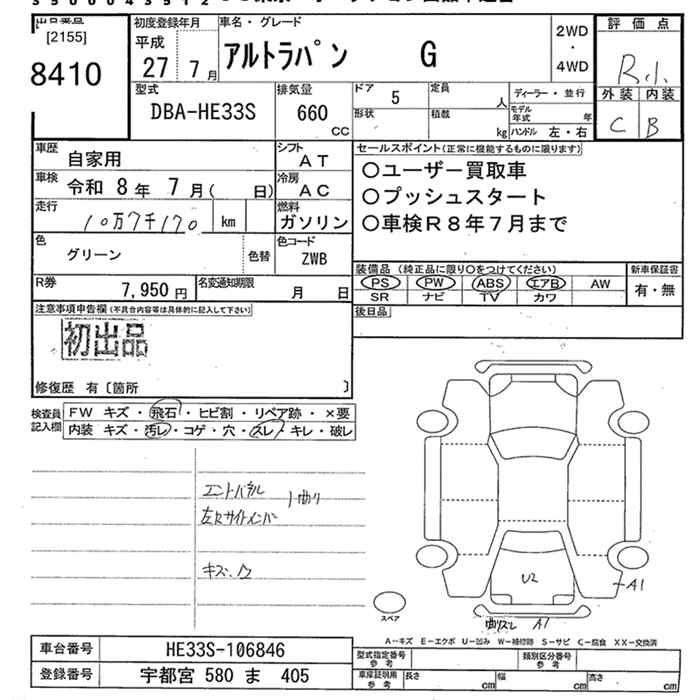 出品番号
[2155]
8410
初度登録年月
平成
27 7月
車名・グレード
アルトラパン G
2WD
・
4WD
評価点
R.1.
外装 内装
C B
型式
DBA-HE33S
排気量
660
cc
ドア
5
定員
人
形状
積載
kg
ディーラー・並行
モデル年式 年
ハンドル 左・右
車歴
自家用
シフト
AT
車検
令和 8年 7月( 日)
冷房
AC
走行
10万7千170 km
燃料
ガソリン
色
グリーン
色替
色コード
ZWB
R券
7,950円
名変通知期限
月 日
セールスポイント(正常に機能するものに限ります)
○ユーザー買取車
○プッシュスタート
○車検R8年7月まで
装備品 (純正品に限り○をつけてください)
PS PW ABS エアB AW
SR ナビ TV カワ
新車保証書
有・無
後日品
注意事項申告欄(不具合内容等は具体的に記入して下さい)
初出品
修復歴 有〔箇所 〕
検査員
記入欄
FW キズ・飛石・ヒビ割・リペア跡・×要
内装 キズ・汚レ・コゲ・穴・スレ・キレ・破レ
エンドパネル
曲り
キズ、凹
U2
A1
曲りズレ A1
スペア
A-キズ E-エクボ U-凹み W-補修跡 S-サビ C-腐食 XX-交換済
車台番号
HE33S-106846
登録番号
宇都宮 580 ま 405
型式指定番号
参考
類別区分番号
参考
車庫証明用
参考
長さ cm
幅 cm
高さ cm